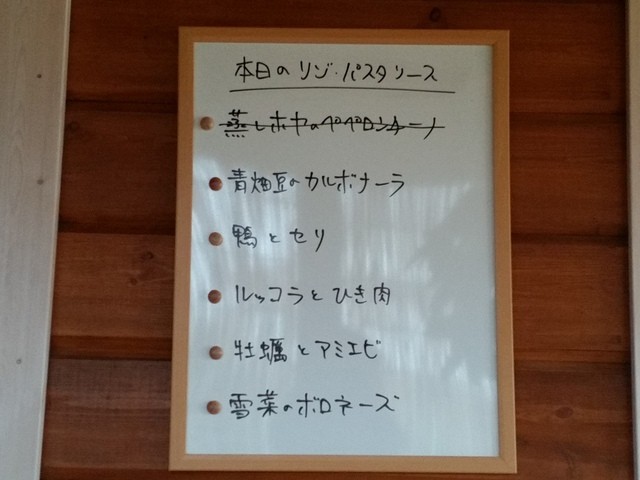 本日のリゾ・パスタソース
蒸しホヤのペペロンチーノ
青畑豆のカルボナーラ
鴨とセリ
ルッコラとひき肉
牡蠣とアミエビ
雪菜のボロネーズ